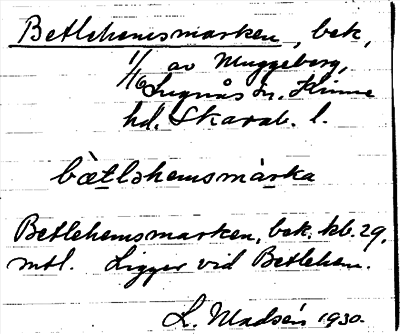 Betlehemsmarken, bek,
1/16 av Muggeberg,
Lugnås sn. Kinne
hd. Skarab. l.
bètləhemsmàrka
Betlehemsmarken, bek. kb. 29,
mtl. Ligger vid Betlehem.
L. Madsén 1930.